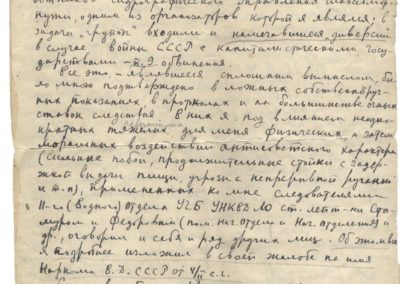 Гидрографического Управления Главсевмор-
пути, одним из организаторов которой я являлся; в
задачи „групп“ входили и намечавшиеся диверсии
в случае войны СССР с капиталистическими госу-
дарствами – обвинения.
Все это, – являвшееся сплошным вымыслом, бы-
ло мною подтверждено в ложных собственноруч-
ных показаниях, в протоколах и на большинстве очных
ставок следствия. В них я, под влиянием неодно-
кратных тяжелых для меня физических, а затем
моральных воздействий антисоветского характера
(сильные побои, продолжительные стойки с задер-
жкой выдачи пищи, угрозы с непрерывной руганью
и т.п.), примененных ко мне следователями
11-го (Водного) Отдела УГБ УНКВД ЛО ст. лейт-ми
и Федоровым (пом. нач. отдела и нач. отделения) и
др., оговорил и себя и ряд других лиц. Об этом все
я подробнее изложил в своей жалобе на имя
Наркома В.Д. СССР от с.г.